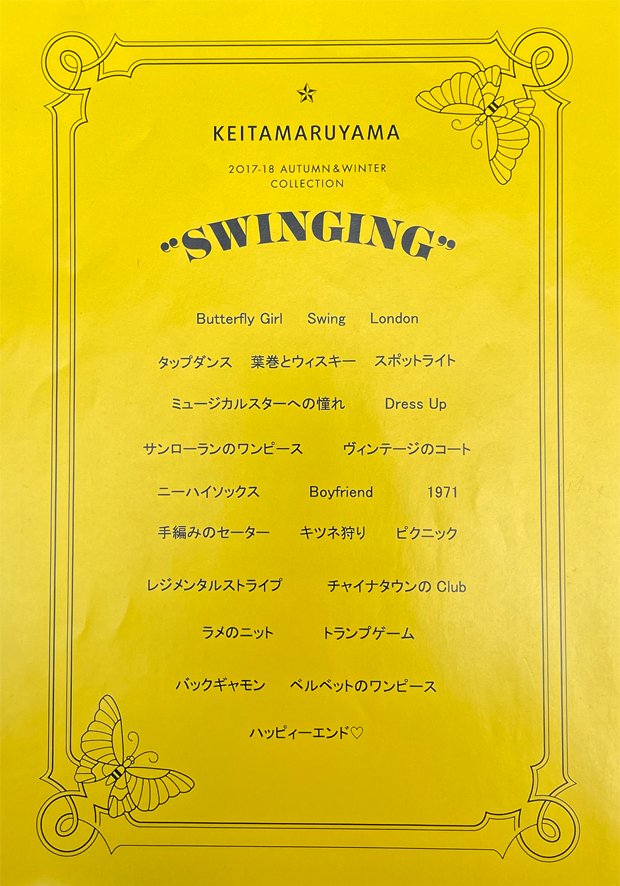 KEITAMARUYAMA
2017-18 AUTUMN&WINTER
COLLECTION
“SWINGING”
Butterfly Girl Swing London
タップダンス 葉巻とウィスキー スポットライト
ミュージカルスターへの憧れ Dress Up
サンローランのワンピース ヴィンテージのコート
ニーハイソックス Boyfriend 1971
手編みのセーター キツネ狩り ピクニック
レジメンタルストライプ チャイナタウンの Club
ラメのニット トランプゲーム
バックギャモン ベルベットのワンピース
ハッピィーエンド♡